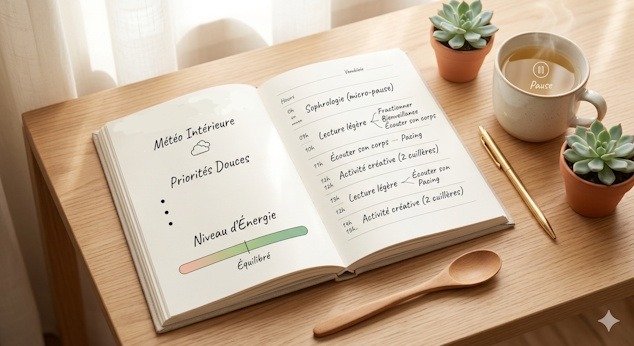 Météo Intérieure
Priorités Douces
Niveau d'Énergie
Équilibré
Heures
Sophrologie (micro-pause)
09h
Lecture légère
Fractionner
Bienveillance
Écouter son corps
10h
11h Écouter son corps — Pacing
12h
Activité créative (2 cuillères)
13h
Lecture légère
Écouter son corps
Pacing
Activité créative (2 cuillères)
Pause